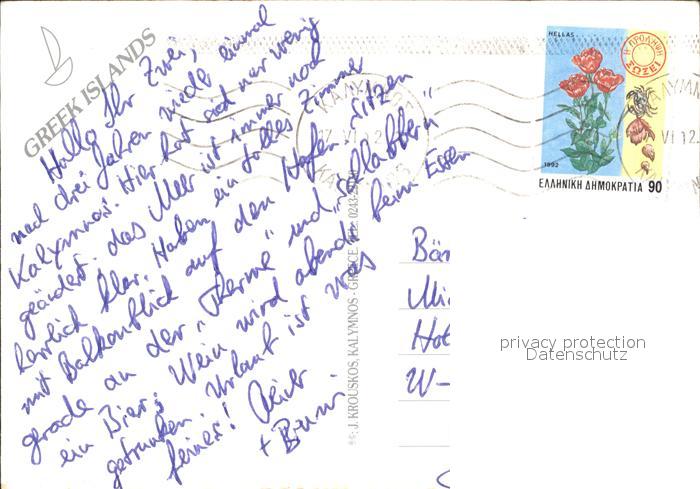 GREEK ISLANDS
Hallo Ihr Zwei,
nach drei Jahren wieder einmal
Kalymnos! Hier hat sich nur wenig
geändert. das Meer ist immer noch
herrlich klar. Haben ein tolles Zimmer
mit Balkonblick auf den Hafen. Sitzen
gerade an der „Therme" und „schlabbern"
ein Bier; Wein wird abends beim Essen
getrunken. Urlaub ist was
feines!
+ Bruni
J. KROUSKOS, KALYMNOS - GREECE
HELLAS
Η ΠΡΟΛΗΨΗ
ΣΩΖΕΙ
1992
ΕΛΛΗΝΙΚΗ ΔΗΜΟΚΡΑΤΙΑ 90
ΚΑΛΥΜΝΟΣ
Bär
Mi
Hot
W-
privacy protection
Datenschutz